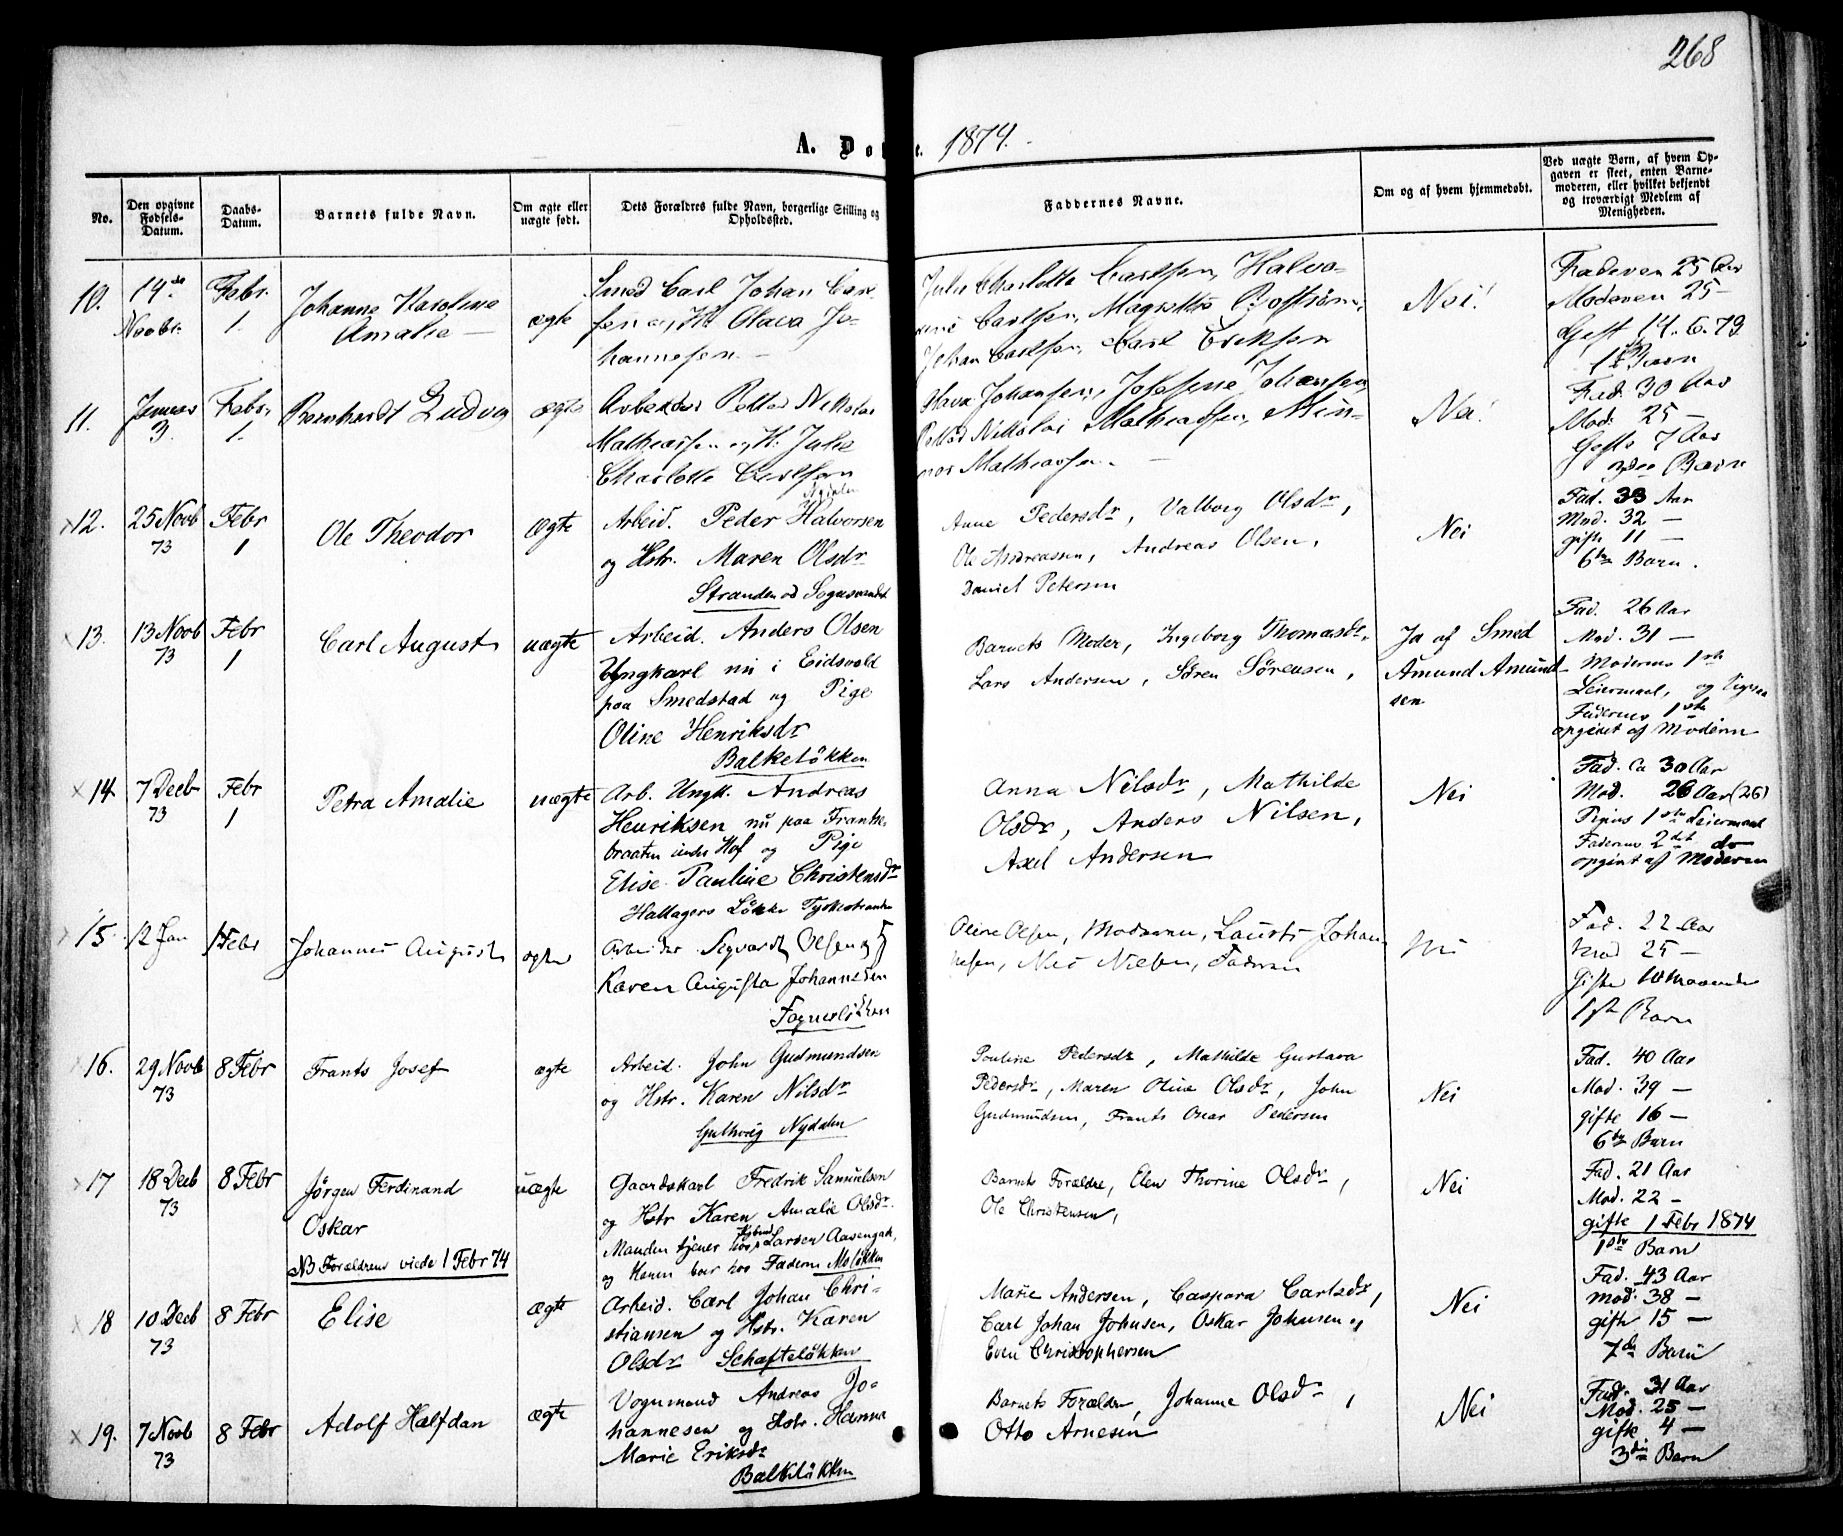 268
A. Døbte. 1874.
No.
Den opgivne Fødsels-Datum.
Daabs-Datum.
Barnets fulde Navn.
Om ægte eller uægte født.
Dets Forældres fulde Navn, borgerlige Stilling og Opholdssted.
Faddernes Navne.
Om og af hvem hjemmedøbt.
Ved uægte Børn, af hvem Opgaven er skeet, enten Barnemoderen, eller hvilket bekjendt og troværdigt Medlem af Menigheden.
10.
14de Novbr.
Febr. 1.
Johanne Karoline
Amalie
ægte
Smed Carl Johan Carl
sen og H. Olava Jo-
hannesen
Julie Charlotte Carlsen, Halvo-
Carlsen, Magrethe Bostrøm,
Johan Carlsen, Carl Eriksen
Nei!
Faderen 25 Aar
Moderen 25 —
Gift 14.6.73
1ste Barn
11.
Januar 3.
Febr. 1.
Bernhardt Ludvig
ægte
Arbeider Petter Nikolai
Mathiassen og H. Julie
Charlotte Carlsen
Olava Johansen, Josefine Johansen
Petter Nikolai Mathiassen, Min-
nor Mathiassen.
Nei!
Fad. 30 Aar
Mod. 25 —
Gifte 7 Aar
Barn
×12.
25 Novb 73
Febr 1
Ole Theodor
ægte
Nydalen
Arbeid. Peder Halvorsen
og Hstr. Maren Olsdr
Stranden ved Sognsvandet
Anne Pedersdr, Valborg Olsdr,
Ole Andreassen, Andreas Olsen,
Daniel Petersen
Nei
Fad. 33 Aar
Mod. 32 —
gifte 11 —
6te Barn.
×13.
13 Novb 73
Febr 1
Carl August
uægte
Arbeid. Anders Olsen
Ungkarl nu i Eidsvold
paa Smedstad og Pige
Oline Henriksdr
Balkeløkken
Barnets Moder, Ingeborg Thomasdr,
Lars Andersen, Søren Sørensen,
Ja af Smed
Amund Amund
sen
Fad. 26 Aar
Mod. 31 —
Moderens 1ste
Leiermaal, og ligesaa
Faderens 1ste
opgivet af Moderen
×14
7 Decb 73
Febr 1
Petra Amalie
uægte
Arb. Ungk. Andreas
Henriksen nu paa Frantse-
braaten under Hof og Pige
Elise Pauline Christensdr
Hallagers Løkke Tyskestranden
Anna Nilsdr, Mathilde
Olsdr, Anders Nilsen,
Axel Andersen
Nei
Fad. ca 30 Aar
Mod. 26 Aar (26)
Pigens 1ste Leiermaal
Faderens 2det do
opgivet af Moderen
15.
12 Jan
1 Febr
Johannes August
ægte
Arbeider Segvardt Olsen og
Karen Augusta Johannesen
Fagerløkken
Oline Olsen, Moderen, Laurits Johan-
nesen, Nils Nielsen, Faderen
Nei
Fad. 22 Aar
Mod 25 —
Gifte 10 Maaneder
1ste Barn
16.
29 Novb 73
8 Febr
Frants Josef
ægte
Arbeid. John Gudmundsen
og Hstr. Karen Nilsdr
Gulhoug Nydalen
Pouline Pedersdr, Mathilde Gustava
Pedersdr, Maren Oline Olsdr, John
Gudmundsen, Frants Oscar Pedersen
Nei
Fad. 40 Aar
Mod. 39 —
gifte 16 —
6te Barn
×17
18 Decb 73
8 Febr
Jørgen Ferdinand
Oskar
NB Forældrene viede 1 Febr 74
uægte
Gaardskarl Fredrik Samuelsen
og Hstr Karen Amalie Olsdr.
Manden tjener hos Larsen Aasengade,
og Konen bor hos Faderen Moløkken
Barnets Forældre, Elen Thorine Olsdr,
Ole Christensen,
Nei
Fad. 21 Aar
Mod. 22 —
gifte 1 Febr 1874
1ste Barn
×18
10 Decb 73
8 Febr
Elise
ægte
Arbeid. Carl Johan Chri-
stiansen og Hstr. Karen
Olsdr Schafteløkken
Marie Andersen, Caspara Carlsdr,
Carl Johan Johnsen, Oskar Johnsen,
Even Christophersen
Nei
Fad. 43 Aar
Mod. 38 —
gifte 15 —
7de Barn
×19.
7 Novb 73
8 Febr
Adolf Halfdan
ægte
Vognmand Andreas Jo-
hannesen og Hstr. Hanna
Marie Eriksdr
Balkeløkken
Barnets Forældre, Johanne Olsdr,
Otto Arnesen
Nei
Fad. 31 Aar
Mod. 25 —
gifte 4 —
3die Barn